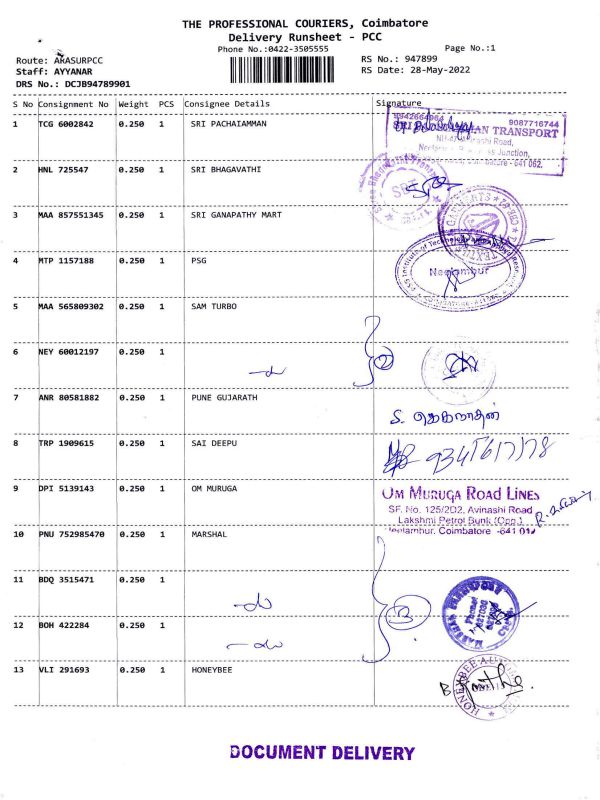 THE PROFESSIONAL COURIERS, Coimbatore
Delivery Runsheet - PCC
Phone No.:0422-3505555
Page No.:1
Route: ARASURPCC
RS No.: 947899
Staff: AYYANAR
RS Date: 28-May-2022
DRS No.: DCJB94789901
S No Consignment No Weight PCS Consignee Details Signature
1 TCG 6002842 0.250 1 SRI PACHAIAMMAN
9942664964 9087716744
TRANSPORT
Junction,
641 062.
2 HNL 725547 0.250 1 SRI BHAGAVATHI
SBT
3 MAA 857551345 0.250 1 SRI GANAPATHY MART
4 MTP 1157188 0.250 1 PSG
Neelambur
5 MAA 565809302 0.250 1 SAM TURBO
6 NEY 60012197 0.250 1
2
7 ANR 80581882 0.250 1 PUNE GUJARATH
8 TRP 1909615 0.250 1 SAI DEEPU
9 DPI 5139143 0.250 1 OM MURUGA
OM MURUGA ROAD LINES
SF. No. 125/2D2, Avinashi Road
Lakshmi Petrol Bunk (Opp.)
Neelambur, Coimbatore -641 014
10 PNU 752985470 0.250 1 MARSHAL
11 BDQ 3515471 0.250 1
3
12 BOH 422284 0.250 1
13 VLI 291693 0.250 1 HONEYBEE
DOCUMENT DELIVERY